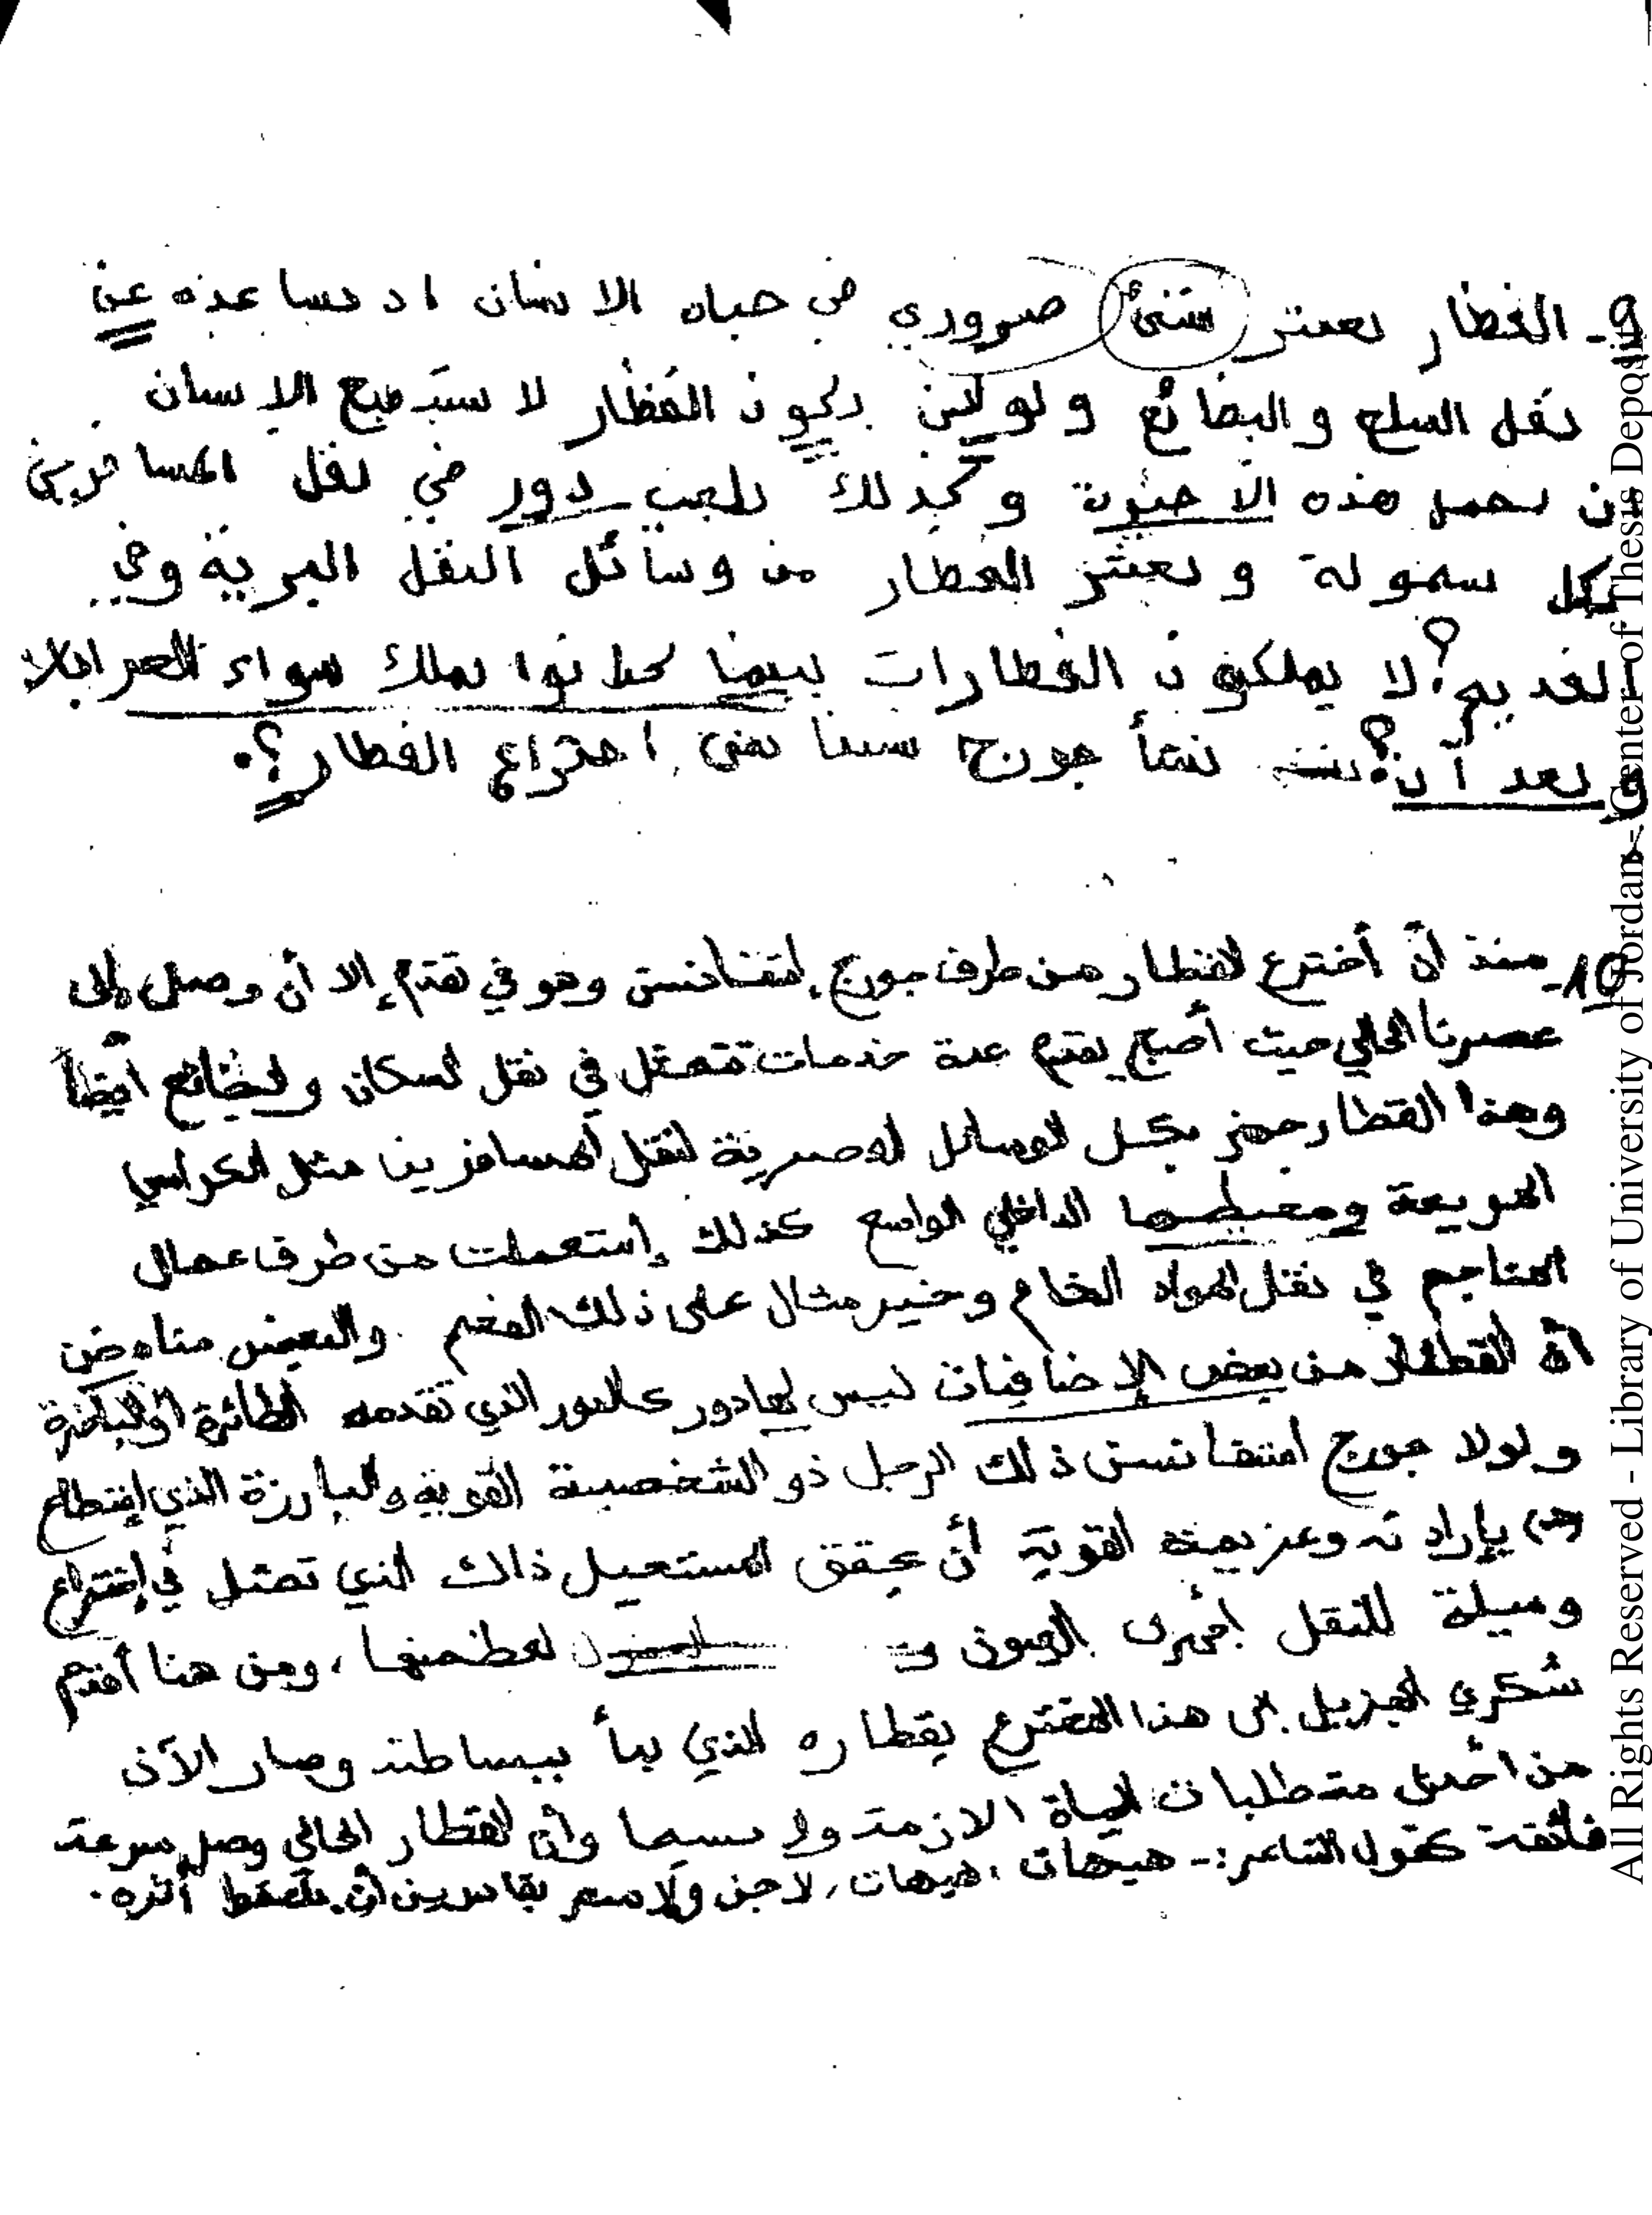 9- القطار يعتبر شيئ ضروري في حياة الانسان اذ يساعده عن
نقل السلع والبضائع ولو لن يكون القطار لا يستطيع الانسان
ان يحمل هذه الاخيرة وكذلك يلعب دور في نقل المسافرين
بكل سهولة ويعتبر القطار من وسائل النقل البرية وفي
القديم ؟ لا يملكون القطارات بينما كانوا يملك سواء العرابلا
وبعد أن ؟ نشأ جورج ستيفنسن اختراع القطار ؟.
10- منذ أن أخترع القطار من طرف جورج وهو في تقدم إلا أن وصل إلى
عصرنا الحالي حيث أصبح يقدم عدة خدمات تتمثل في نقل السكان والبضائع ايضاً
وهذا القطار جهز بكل الوسائل العصرية لنقل المسافرين مثل الكراسي
المريحة الداخلي الواسع كذلك إستعملت من طرف عمال
المناجم في نقل المواد الخام وخير مثال على ذلك الفحم والبعض
أن القطار من بعض الإضافيات ليس لها دور كالدور الذي تقدمه الطائرة أو الباخرة
ولولا جورج ذلك الرجل ذو الشخصية القوية والبارزة الذي إستطاع
بإرادته وعزيمته القوية أن يحقق المستحيل ذاك الذي تمثل في إختراع
وسيلة للنقل العيون لعظمتها، ومن هنا أقدم
شكري الجزيل الى هذا المخترع بقطاره الذي بدأ ببساطته وصار الآن
من متطلبات الحياة الازمة ولا سيما وأن القطار الحالي وصل سرعة
فائقة كقول الشاعر:- هيهات، هيهات، لا جن ولا سحر بقادرين أن أثره.
All Rights Reserved - Library of University of Jordan - Center of Thesis Deposit